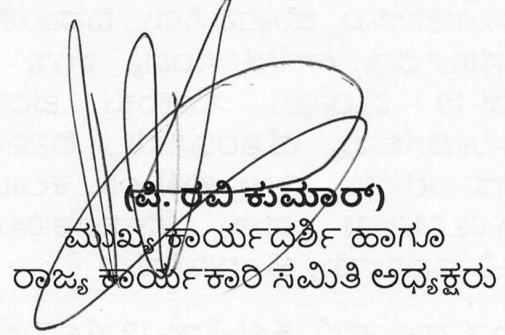 (ಪಿ. ರವಿ ಕುಮಾರ್)
ಮುಖ್ಯ ಕಾರ್ಯದರ್ಶಿ ಹಾಗೂ
ರಾಜ್ಯ ಕಾರ್ಯಕಾರಿ ಸಮಿತಿ ಅಧ್ಯಕ್ಷರು